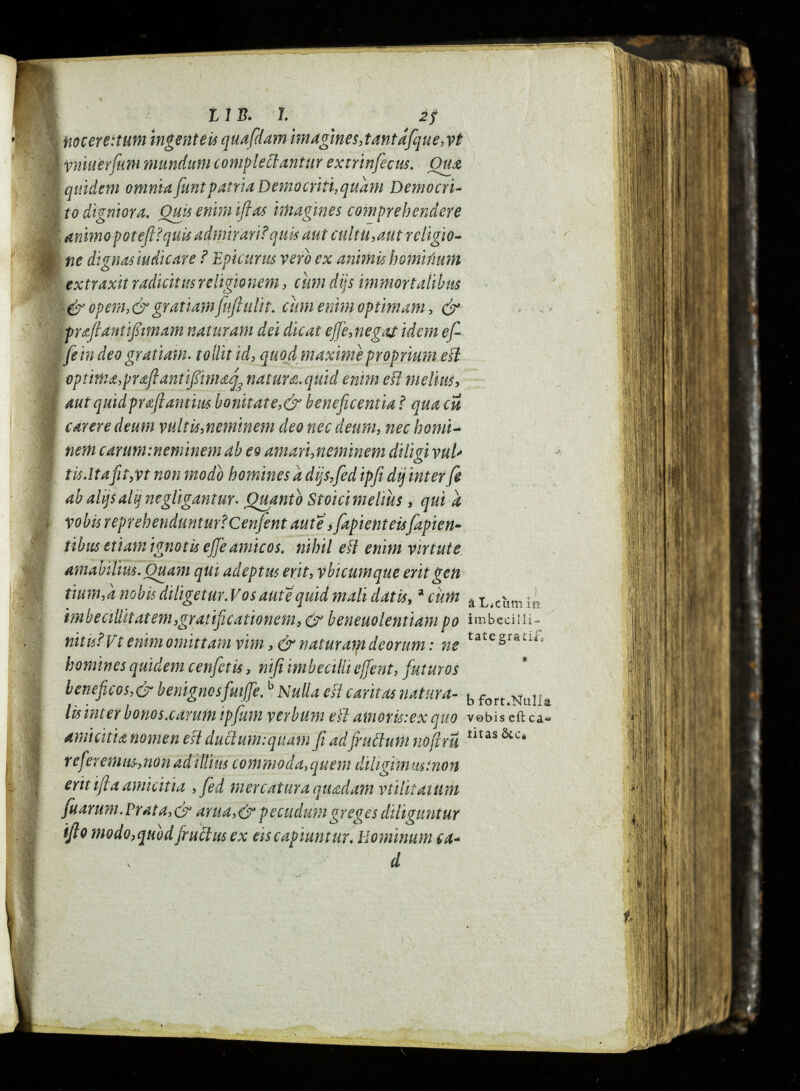 LIB. I. 25
nocere:tum ingenteis quasdam imagines,tantásque,vt
vniuersum mundum complectantur extrinsecus. Quæ
quidem omnia sunt patria Democriti,quàm Democri-
to digniora. Quis enim istas imagines comprehendere
animo potest?quis admirari?quis aut cultu,aut religio-
ne dignas iudicare? Epicurus verò ex animis hominum
extraxit radicitus religionem, cùm dijs immortalibus
& opem,& gratiam sustulit. cùm enim optimam, &
præstantißimam naturam dei dicat esse,negat idem es-
se in deo gratiam. tollit id, quod maximè proprium est
optimæ,præstantißimæq; naturæ.quid enim est melius,
aut quid præstantius bonitate,& beneficentia? qua cũ
carere deum vultis,neminem deo nec deum, nec homi-
nem carum:neminem ab eo amari,neminem diligi vul-
tis.Ita fit,vt non modò homines à dijs,sed ipsi dij inter se
ab alijs alij negligantur. Quantò Stoici melius, qui à
vobis reprehenduntur?Censent autẽ, sapienteis sapien-
tibus etiam ignotis esse amicos. nihil est enim virtute
amabilius. Quam qui adeptus erit, vbicumque erit gen
tium,à nobis diligetur. Vos autẽ quid mali datis, ᵃ cùm
imbecillitatem,gratificationem, & beneuolentiam po
nitis? Vt enim omittam vim, & naturam deorum: ne
homines quidem censetis, nisi imbecilli essent, futuros
beneficos,& benignos fuisse. ᵇ Nulla est caritas natura-
lis inter bonos.carum ipsum verbum est amoris:ex quo
amicitiæ nomen est ductum:quam si ad fructum nostrũ
referemus,non ad illius commoda,quem diligimus:non
erit ista amicitia , sed mercatura quædam vtilitatum
suarum. Prata,& arua,& pecudum greges diliguntur
isto modo,quòd fructus ex eis capiuntur. Hominum ca-
d
a L.cùm in
imbecilli-
tate gratif.
b fort.Nulla
vobis est ca-
ritas &c.